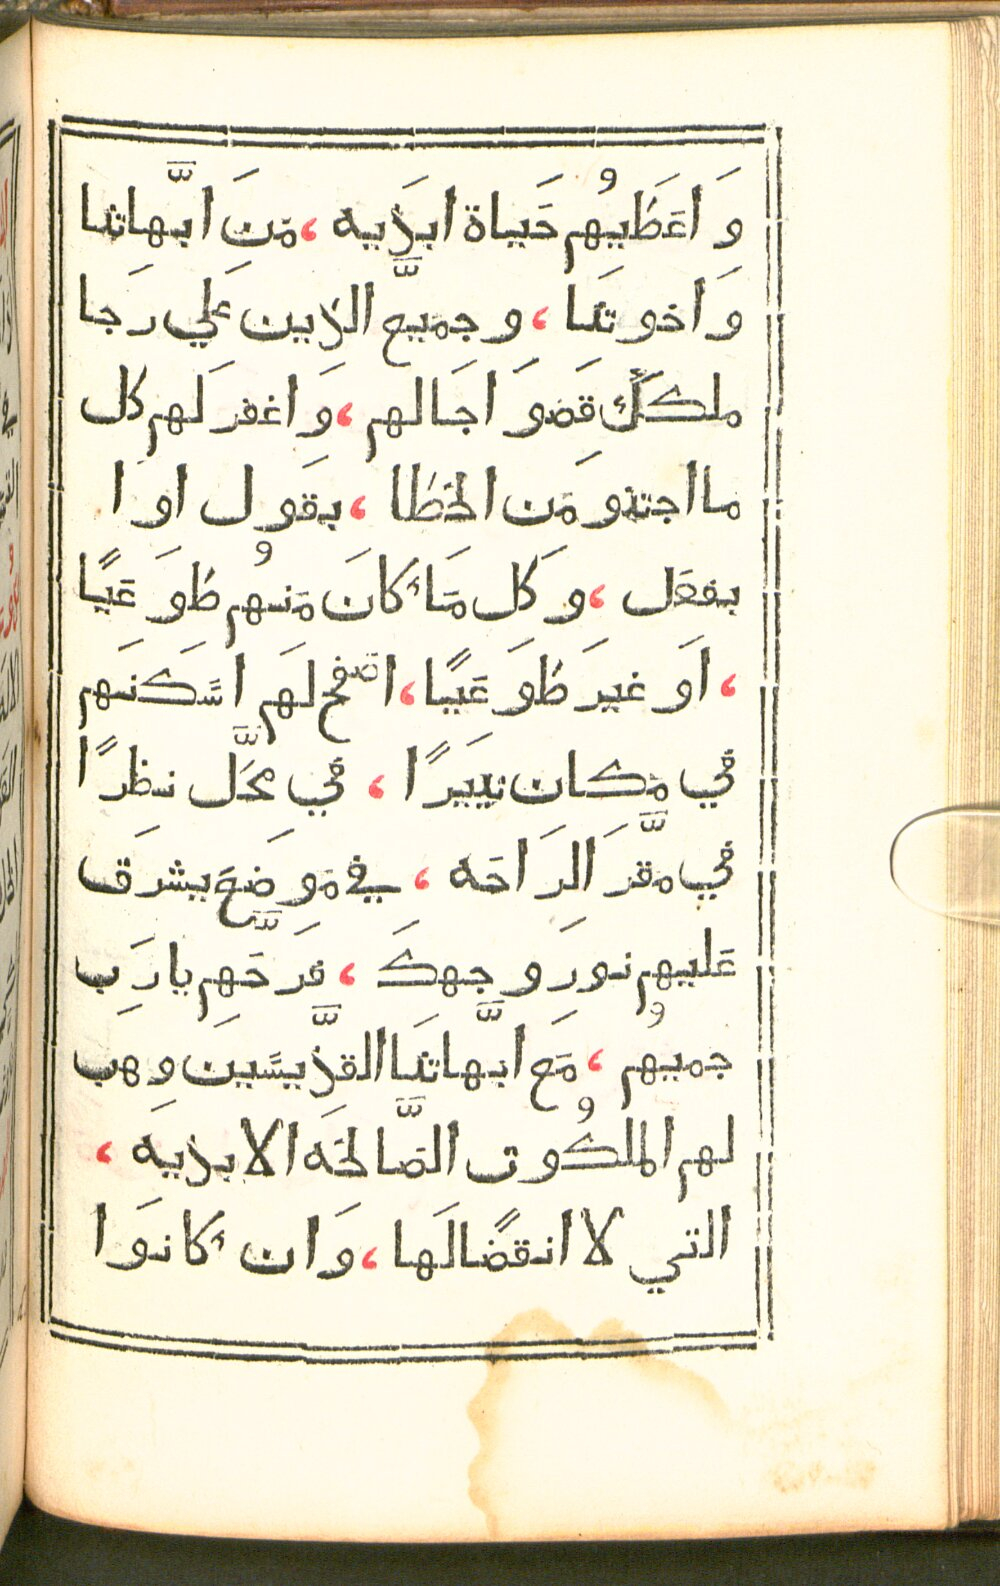 وَ اعَطَيهُم حَياة ابدَيه ، مَن ابَّهاتنا
وَ اخوتنَا ، و جميع الذين عَلي رَجا
ملككَ قَضَوَ اجَالهم ، وَ اغفر لهم كل
ما اجتنو مَن الخطَا ، بقَول اوَ ا
بفعَل ، وَ كل مَا كانَ مَنهُم طوَعَيًا
، اوَ غيرَ طوَعَيًا ، اصفح لهَم اسَكنَهم
في مَكان نيرًا ، في محَّل نظرًا
في مقَّرَ الرَاحَه ، في مَوضَعَ يشرَق
عَليهم نورَ وجهكَ ، فرَّحَهم يا رَب
جميهُم ، مَع ابَّهاتنَا القدَّيسَينَ وهب
لهم الملكُوت الصَّالحَه الابديَه ،
التي لا انقضًا لهَا ، وَان كانوَا